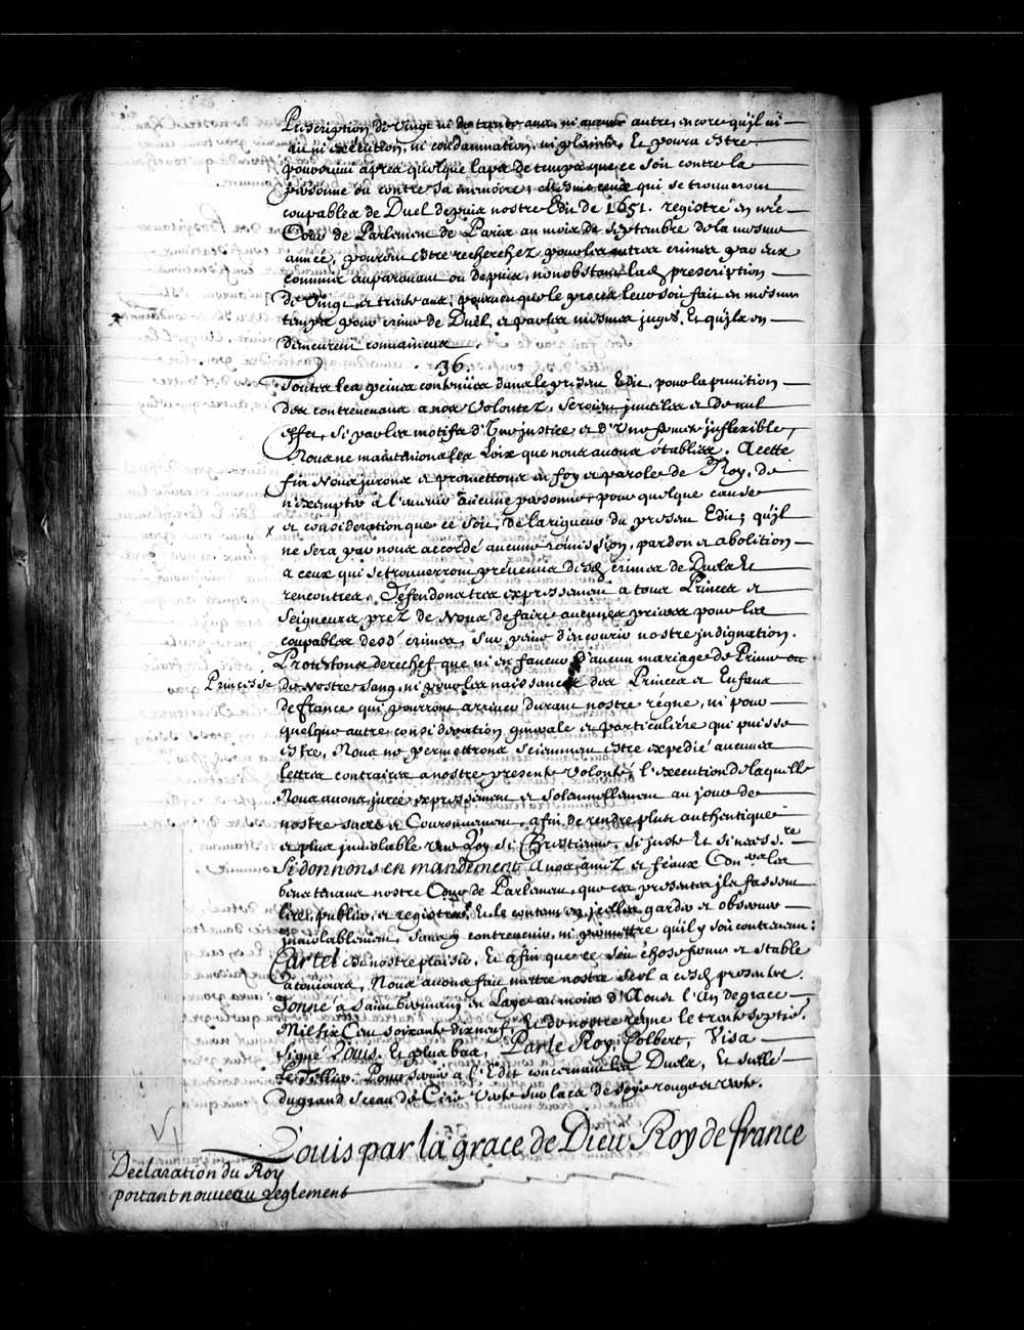 Prescription de Vingt ni de trente ans, ni aucune autre, encore qu'jl ni
ait ni execution, ni condamnation, ni plainte, Et pourra estre
poursuivi apres quelque laps de temps que ce soit contre la
personne ou contre sa memoire; Mesmes ceux qui se trouveront
coupables de Duel depuis nostre Edit de 1651. registré en nre
Cour de Parlement de Paris au mois de Septembre de la mesme
année, pourront estre recherchez pour les autres crimes par eux
commis auparavant ou depuis, nonobstant lad. prescription
de Vingt et trente ans, pourveu que le procez leur soit fait en mesme
temps pour crime de Duël, et par les mesmes juges, Et qu'jls en
demeurent convaincus.
36
Toutes les peines contenües dans le present Edit, pour la punition
des contrevenans a nos Volontez, seroient jnutiles et de nul
effet, si par les motifs d'Vne justice et d'Vne fermeté jnflexible,
Nous ne maintenions les Loix que nous avons établies. A cette
fin Nous jurons et promettons en foy et parole de Roy, de
n'exempter à l'avenir aucune personne, pour quelque cause
et consideration que ce soit, de la rigueur du present Edit; qu'jl
ne sera par nous accordé aucune remission, pardon et abolition
a ceux qui se trouverront prevenus desd. crimes de Duels Et
rencontres, Defendons tres expressement a tous Princes et
Seigneurs prez de Nous de faire aucunes prieres pour les
coupables desd. crimes, sur peine d'encourir nostre jndignation.
Protestons derechef que ni en faveur d'aucun mariage de Prince ou
Princesse de nostre Sang, ni pour les naissances des Princes et Enfans
de france qui pourront arriver durant nostre régne, ni pour
quelque autre consideration generale et particulière qui puisse
estre, Nous ne permettrons sciemment estre expedié aucunes
lettres contraires a nostre presente Volonté, l'execution de laquelle
Nous avons jurée expressement et solennellement au jour de
nostre sacre et Couronnement, afin de rendre plus authentique
et plus jnviolable une Loy si Chrestienne, si juste Et si necess.re
Si donnons en mandement a nos amez et féaux Con.ers les
gens tenans nostre Cour de Parlement, que ces presentes jls fassent
lire, publier, et registrer, Et le contenu en jcelles garder et observer
jnviolablement, sans y contrevenir, ni permettre qu'il y soit contrevenu:
Car tel est nostre plaisir, Et afin que ce soit chose ferme et stable
a toujours, Nous avons fait mettre nostre Scel a cesd. presentes.
Donné a Saint Germain en Laye au mois d'Aoust l'An de grace
Mil six Cens soixante dix neuf, Et de nostre regne le trente septie.
Signé Loüis. Et plus bas, Par le Roy, Colbert, Visa
Le Tellier. Pour servir a l'Edit concernant les Duels, Et scellé
du grand Sceau de Cire Verte sur lacs de soye rouge et verte.
Louis par la grace de Dieu Roy de france
Declaration du Roy
portant nouveau reglement